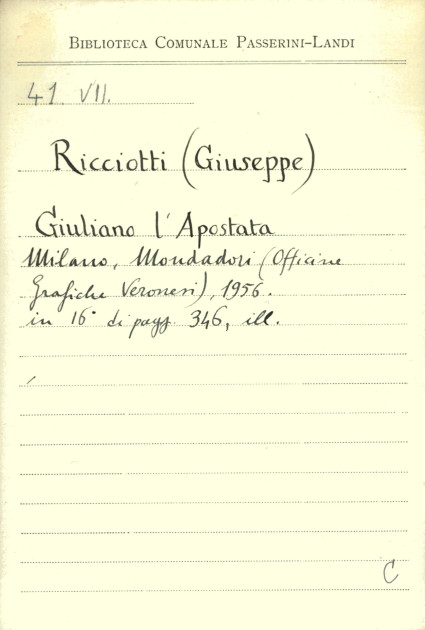 BIBLIOTECA COMUNALE PASSERINI-LANDI
41. VII.
Ricciotti (Giuseppe)
Giuliano l'Apostata
Milano, Mondadori (Officine
Grafiche Veronesi), 1956.
in 16° di pagg. 346, ill.
C